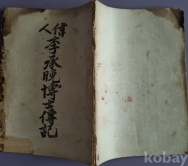 偉人
李承晩博士傳記
kobay